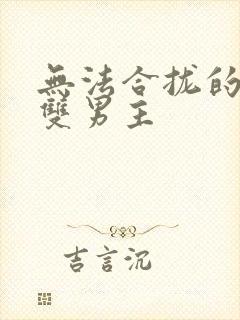 無法合拢的
雙男主
吉言沉